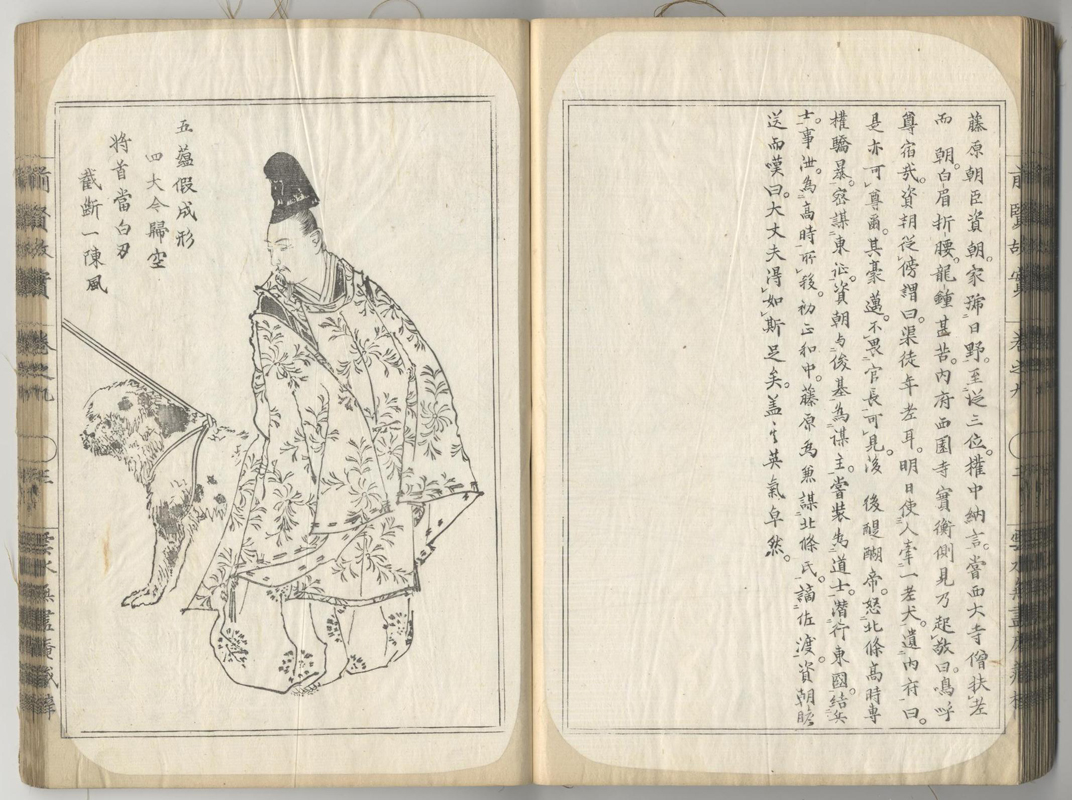 藤原朝臣資朝。家號日野。至從三位權中納言。嘗西大寺僧扶老
而 朝。白眉折腰。龍鐘甚苦。內府西園寺實衡側見乃起敬曰。嗚呼
尊宿哉。資朝從傍謂曰。渠徒年老耳。明日使人牽一老犬。遺內府曰。
是亦可尊爾。其豪邁。不畏官長可見。後 後醍醐帝。怒北條高時專
權驕暴。密謀東征。資朝與俊基為謀主。嘗裝為道士。潛行東國。結兵
士。事泄。為高時所 。初正和中。藤原為兼謀北條氏。謫佐渡。資朝瞻
送而嘆曰。大丈夫得如斯足矣。蓋 英氣卓然。
五蘊假成形
四大今歸空
將首當白刃
截斷一陳風
前賢故實 卷之九